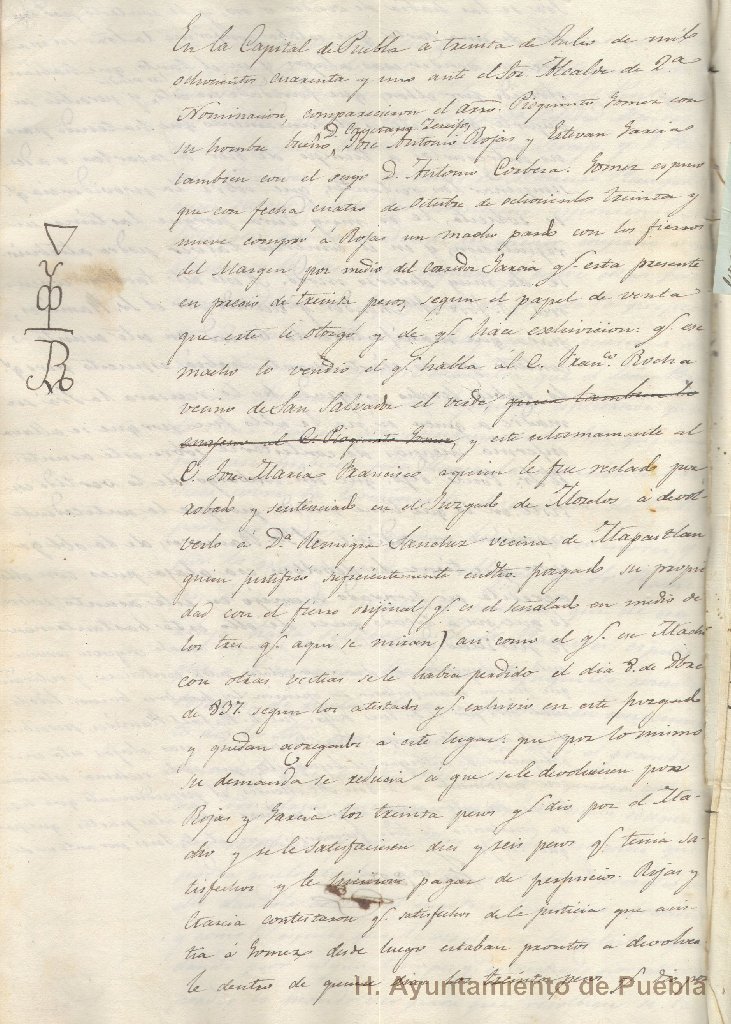 En la Capital de Puebla á treinta de Julio de mil
ochocientos cuarenta y uno ante el Sor Alcalde de 2.a
Nominacion, comparecieron el Pioquinto Gomez con
su hombre bueno D. Cayetano José Antonio Rojas y Estevan Garcia
tambien con el suyo D. Antonio Corbera: Gomez espuso
que con fecha cuatro de Octubre de ochocientos treinta y
nueve compró á Rojas un macho pardo con los fierros
del Margen por medio del corredor Garcia qe. esta presente
en precio de treinta pesos, segun el papel de venta
que este le otorgó y de qe. hace exhivicion: qe. ese
macho lo vendio el qe. habla al C. Franco. Rocha
vecino de San Salvador el verde, quien tambien lo
al C. Pioquinto Gomez, y este ultimamente al
C. José Maria Francisco aquien le fue reclado por
robado y sentenciado en el Juzgado de Morelos á devol-
verlo á Da. Remigia Sanchez vecina de
quien justificó suficientemente su propie
dad con el fierro original (qe. es el señalado en medio de
los tres qe. aqui se miran) asi como el qe. ese Macho
con otras vestias se le habia perdido el dia 8. de Dbre
de 837. segun los atestados qe. exhivio en este juzgado
y quedan agregados á este lugar: que por lo mismo
su demanda se reducia a que se le devolviesen por
Rojas y Garcia los treinta pesos qe. dio por el Ma-
cho y se le satisfaciesen dies y seis pesos qe. tenia sa-
tisfechos y le hicieron pagar de perjuicios. Rojas y
Garcia contestaron qe. satisfechos de la justicia que asis-
tia á Gomez desde luego estaban prontos á devolver
le dentro de quince dias los treinta pesos
H. Ayuntamiento de Puebla